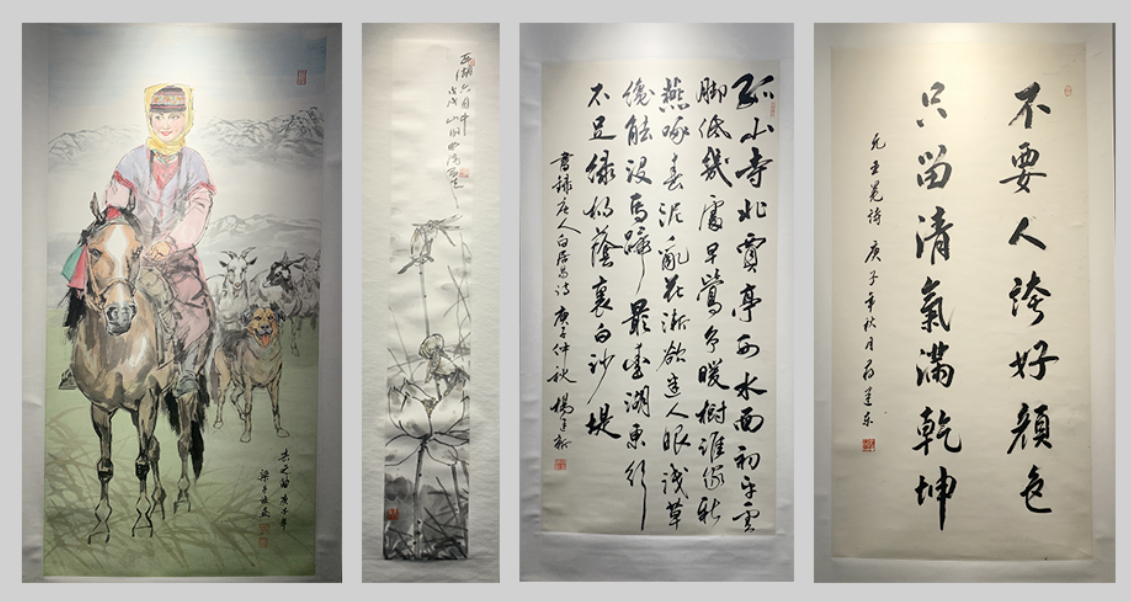 之韵 庚子年
西湖六月中
戊戌
孤山寺北賈亭西水面初平雲
脚低幾處早鶯争暖樹誰家新
燕啄春泥亂花漸欲迷人眼淺草
纔能没馬蹄最愛湖東行
不足緑楊蔭裏白沙堤
書録唐人白居易詩 庚子仲秋 楊
不要人誇好顔色
只留清氣滿乾坤
元王冕詩 庚子年秋月